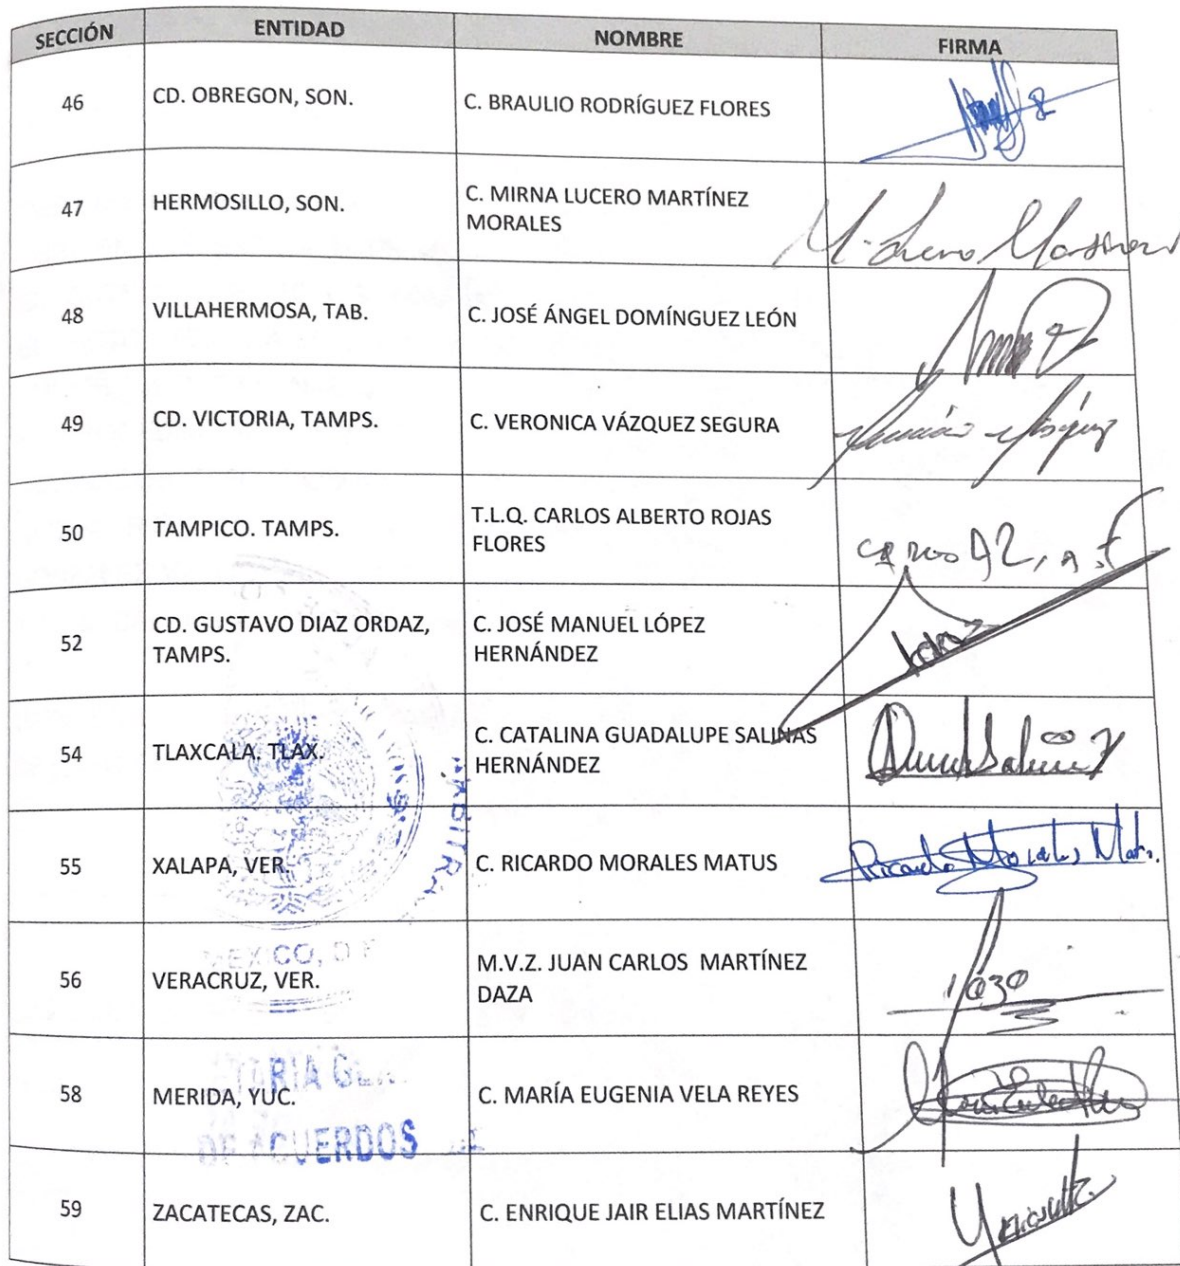 SECCIÓN ENTIDAD NOMBRE FIRMA
46 CD. OBREGON, SON. C. BRAULIO RODRÍGUEZ FLORES
47 HERMOSILLO, SON. C. MIRNA LUCERO MARTÍNEZ
MORALES
48 VILLAHERMOSA, TAB. C. JOSÉ ÁNGEL DOMÍNGUEZ LEÓN
49 CD. VICTORIA, TAMPS. C. VERONICA VÁZQUEZ SEGURA
50 TAMPICO. TAMPS. T.L.Q. CARLOS ALBERTO ROJAS
FLORES
52 CD. GUSTAVO DIAZ ORDAZ, C. JOSÉ MANUEL LÓPEZ
TAMPS. HERNÁNDEZ
54 TLAXCALA. TLAX. C. CATALINA GUADALUPE SALINAS
HERNÁNDEZ
55 XALAPA, VER. C. RICARDO MORALES MATUS Ricardo Morales
MEXICO, D F
56 VERACRUZ, VER. M.V.Z. JUAN CARLOS MARTÍNEZ
DAZA
58 MERIDA, YUC. C. MARÍA EUGENIA VELA REYES
DE ACUERDOS
59 ZACATECAS, ZAC. C. ENRIQUE JAIR ELIAS MARTÍNEZ